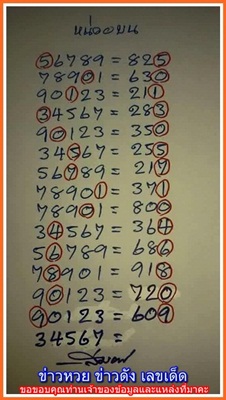 หน่วยบน
56789 = 825
78901 = 630
90123 = 211
34567 = 283
90123 = 350
34567 = 255
56789 = 217
78901 = 371
78901 = 800
34567 = 364
56789 = 686
78901 = 918
90123 = 720
90123 = 609
34567 =
ข่าวหวย ข่าวดัง เลขเด็ด
ขอขอบคุณท่านเจ้าของข้อมูลและแหล่งที่มาคะ